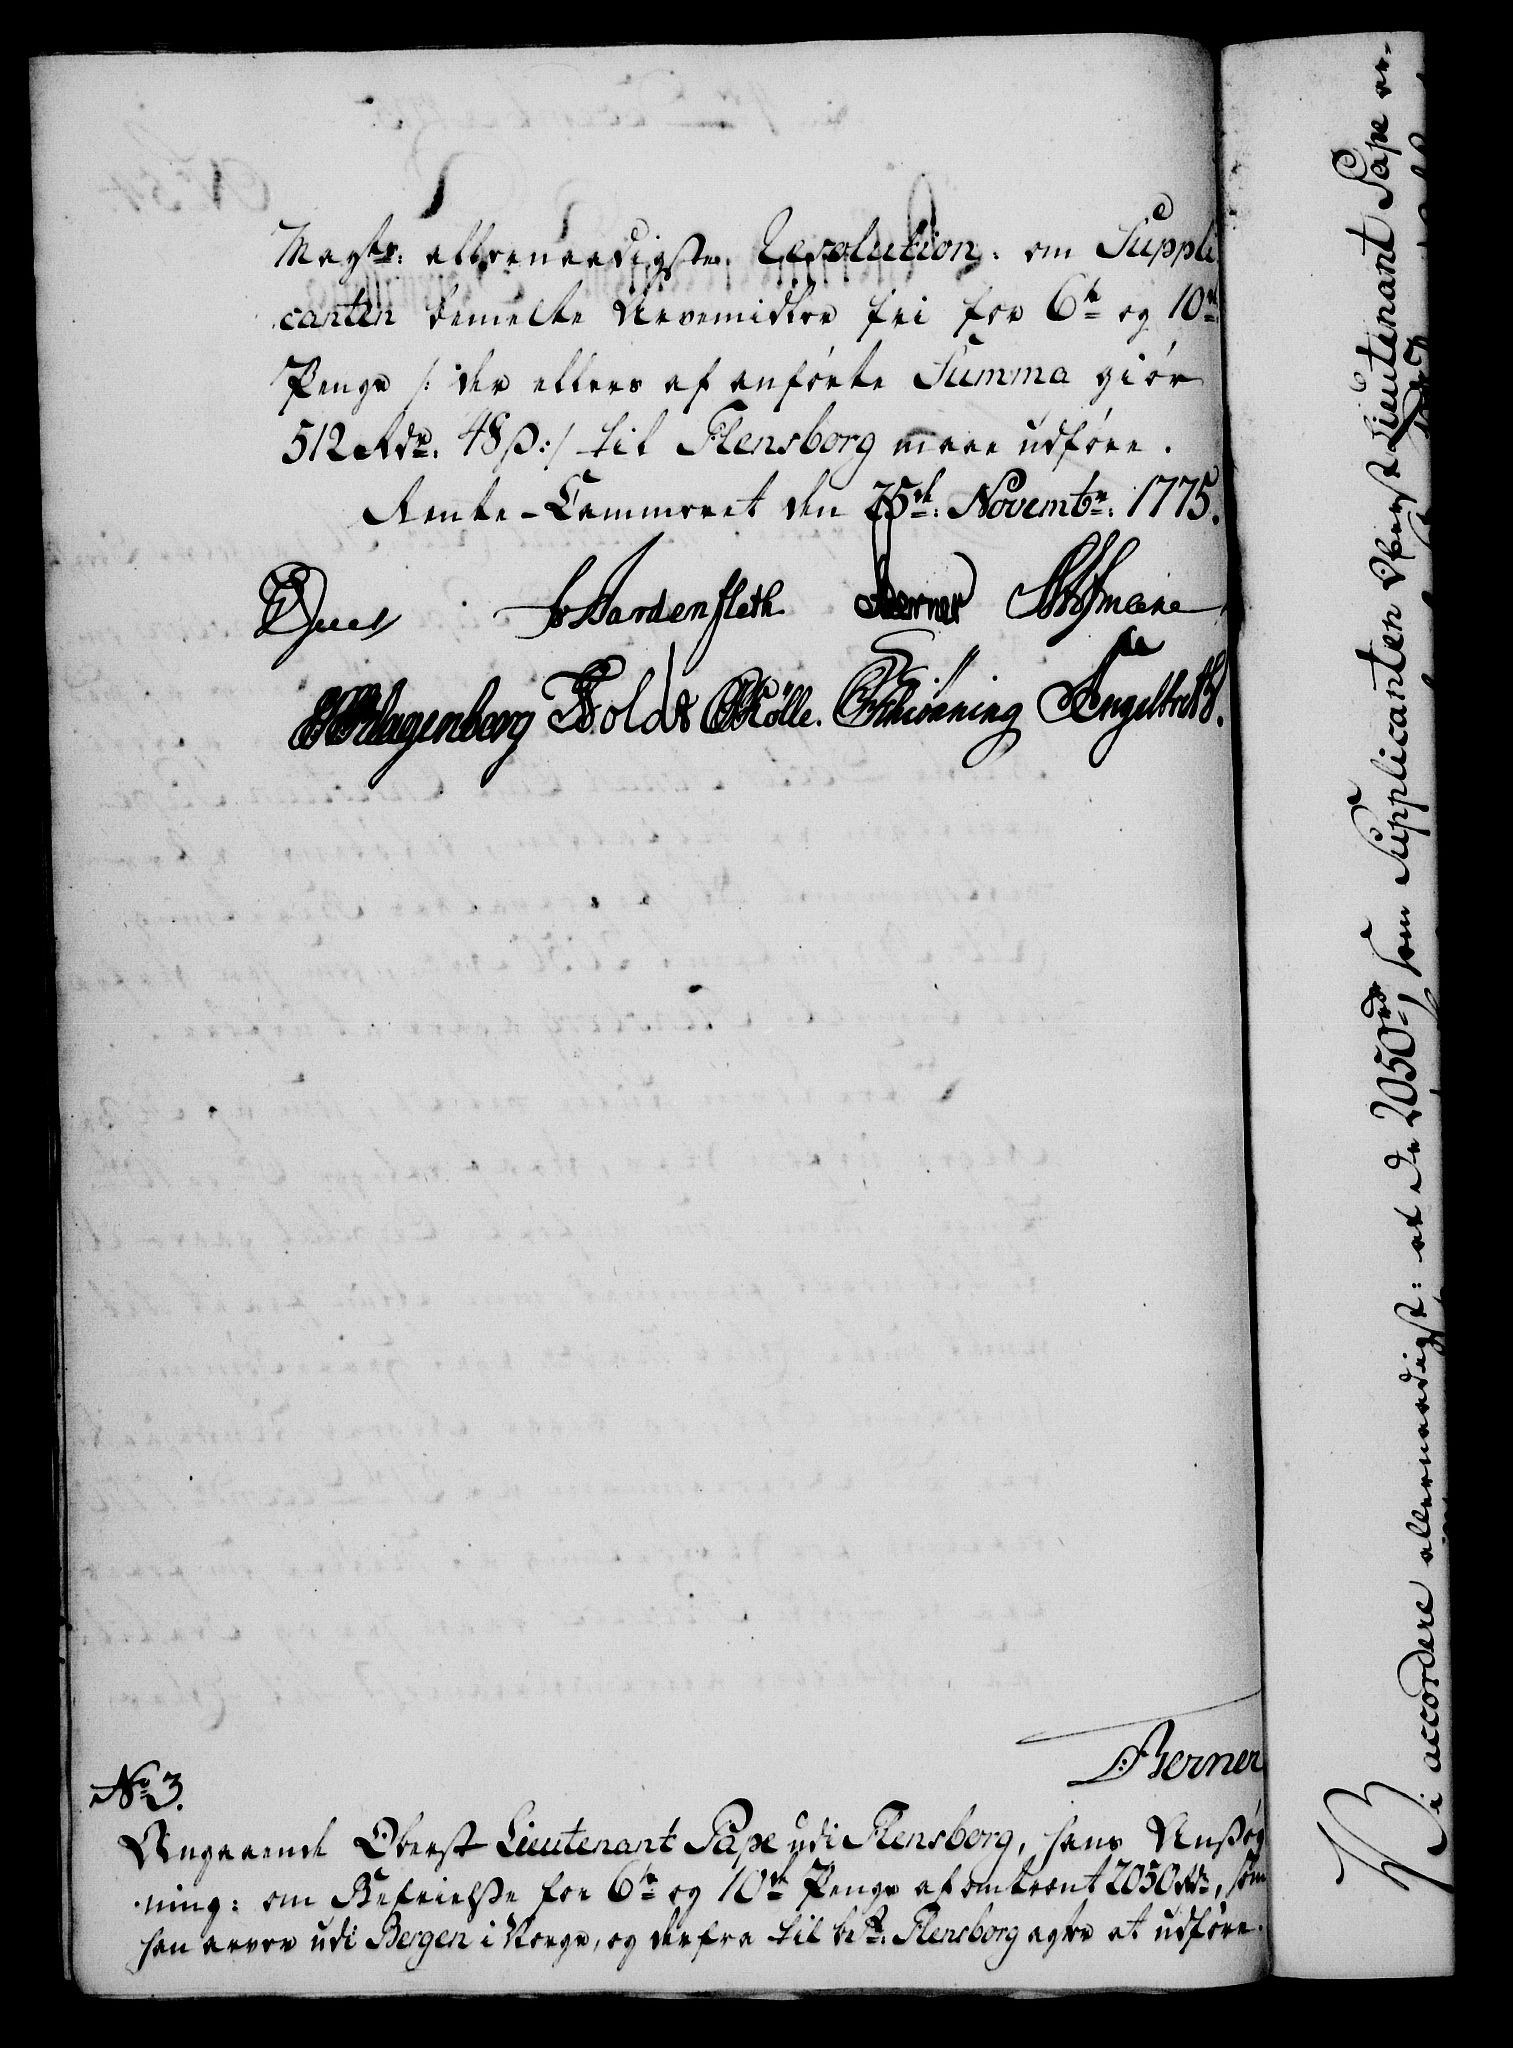 Mayts: allernaadigste Resolution: om Suppli
canten bemelte Arvemidler fri for 6te og 10de
Penge /: der ellers af anförte Summa giör
512 Rdr. 48 ß:/ til Flensborg maae udföre.
Rente-Cammeret den 25de Novembr: 1775.
Juel Hardenfleth Berner
Klagenberg Holdt Kölle. Schiönning Engelbreth.
Berner
No 3.
Angaaende Oberst Lieutenant Pape udi Flensborg, hans Ansög
ning: om Befrielse for 6te og 10de Penge af omtrent 2050 Rdr, som
han arver udi Bergen i Norge, og derfra til bte Flensborg agter at udföre.
Vi accordere allernaadigst: at de 2050 rdr, som Supplicanten Oberst Lieutenant Pape er-